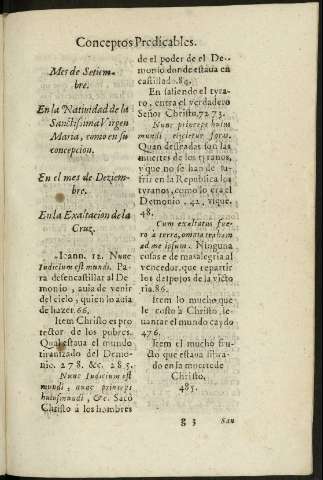 Conceptos Predicables.
Mes de Setiem-
bre.
En la Natividad de la
Sanctissima Virgen
Maria, como en su
concepcion.
En el mes de Deziem-
bre.
En la Exaltacion de la
Cruz.
Ioann. 12. Nunc
Iudicium est mundi. Pa-
ra desencastillar al De-
monio, auia de venir
del cielo, quien lo auia
de hazer. 66,
Item Christo es pro-
tector de los pobres.
Qual estaua el mundo
tiranizado del Demo-
nio. 278. &c. 285.
Nunc Iudicium est
mundi, nunc princeps
huius mundi, &c. Sacò
Christo à los hombres
de el poder de el De-
monio donde estaua en
castillado. 84.
En saliendo el tyra-
no, entra el verdadero
Señor Christo. 72 73.
Nunc princeps huius
mundi eijcietur foras.
Quan desseadas son las
muertes de los tyranos,
y que no se han de su-
frir en la Republica los
tyranos, como lo era el
Demonio. 42, vique.
48.
Cum exaltatus fue-
ro à terra, omnia traham
ad me ipsum. Ninguna
cosa es de mas alegria al
vencedor, que repartir
los despojos de la victo
ria. 86.
Item lo mucho que
le costò à Christo, le-
uantar el mundo caydo
476.
Item el mucho fru-
cto que estaua
do en la muerte de
Christo.
485.
g 3 Sau